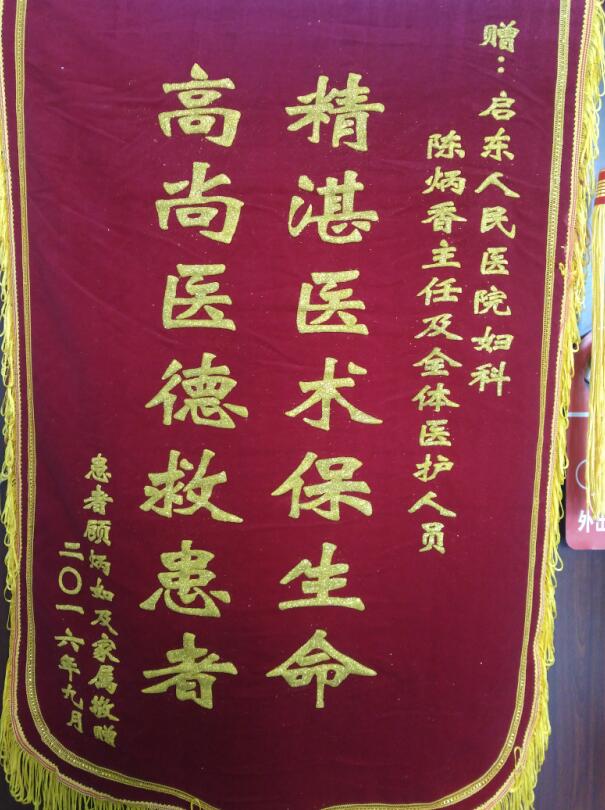 赠：启东人民医院妇科
陈炳香主任及全体医护人员
精湛医术保生命
高尚医德救患者
患者顾炳如及家属敬赠
二〇一六年九月
外出